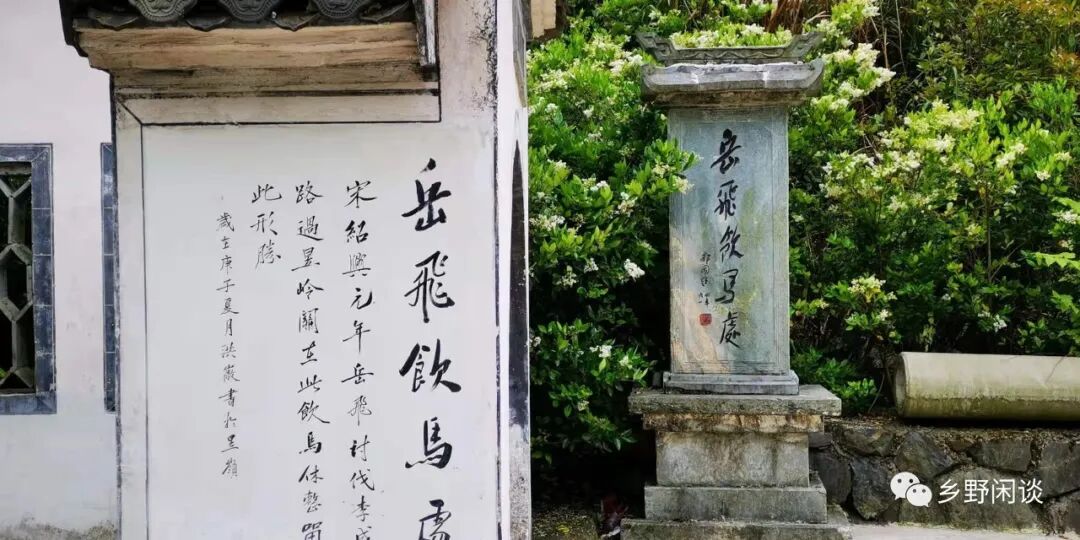 岳飛飲馬處
宋紹興元年岳飛討伐李成
路過昱岭關在此飲馬休整留
此形勝
歲在庚子夏月洪嶽書於昱嶺
岳飛飲馬處
乡野闲谈